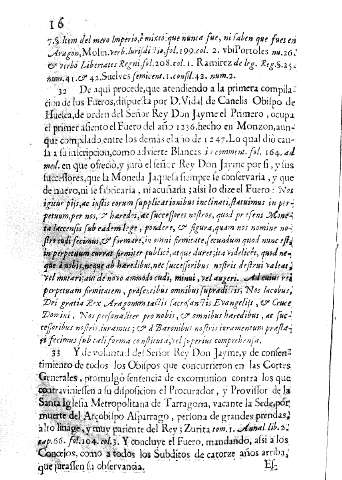 16
7. §. Item del mero Imperio, è mixto: que nunca fue, ni saben que fues en
Aragon, Molin. verb. Iurisdictio, fol. 199. col. 2. vbi Portoles nu. 26.
& verbo Libertates Regni fol. 208. col. 1. Ramirez de leg. Reg. §. 25.
num. 41. & 42. Suelves semicent. 1. consil. 42. num. 2.
32 De aqui procede, que atendiendo a la primera compila-
cion de sus Fueros, dispuesta por D. Vidal de Canelis Obispo de
Huesca, de orden del Señor Rey Don Jayme el Primero, ocupa
el primer asiento el Fuero del año 1236. hecho en Monzon, aun-
que compilado entre los demàs el año de 1247. Lo qual diò cau-
sa a su inscripcion, como advierte Blancas in comment. fol. 164. ad
med. en que ofreciò, y jurò el señor Rey Don Jayme por si, y sus
successores, que la Moneda Jaquesa siempre se conservaria, y que
de nuevo, ni se fabricaria, ni acuñaria; assi lo dize el Fuero: Nos
igitur pijs, ac iustis eorum supplicationibus inclinati, statuimus in per-
petuum, per nos, & hæredes, ac successores nostros, quod præsens Mone-
ta Iaccensis sub eadem lege, pondere, & figura, quam nos nomine no-
stro cudi fecimus, & formare, in omni firmitate,
in perpetuum currat firmiter publicè, atque duret; ita videlicet, quod ne-
que à nobis, neque ab hæredibus, nec successoribus nostris destrui valeat,
vel mutari, aut de novo amodo cudi, minui, vel augeri. Ad
perpetuam firmitatem, præsentibus omnibus supradictis, Nos Iacobus,
Dei gratia Rex Aragonum tactis Sacrosanctis Evangelijs, & Cruce
Domini, Nos personaliter pro nobis, & omnibus hæredibus, ac suc-
cessoribus nostris, iuramus; & à Baronibus nostris iuramentum præsta-
ri fecimus sub tali forma constituta, vel superius comprehensa.
33 Y de voluntad del Señor Rey Don Jayme, y de consen-
timiento de todos los Obispos que concurrieron en las Cortes
Generales, promulgò sentencia de excomunion contra los que
contraviniessen a su disposicion el Procurador, y Provissor de la
Santa Iglesia Metropolitana de Tarragona, vacante la Sede, por
muerte del Arçobispo Asparrago, persona de grandes prendas,
alto linage, y muy pariente del Rey; Zurita tom. 1. Annal lib. 2.
cap. 66. fol. 104. col. 3. Y concluye el Fuero, mandando, assi a los
Concejos, como a todos los Subditos de catorze años arriba,
que jurassen su observancia.
Es-